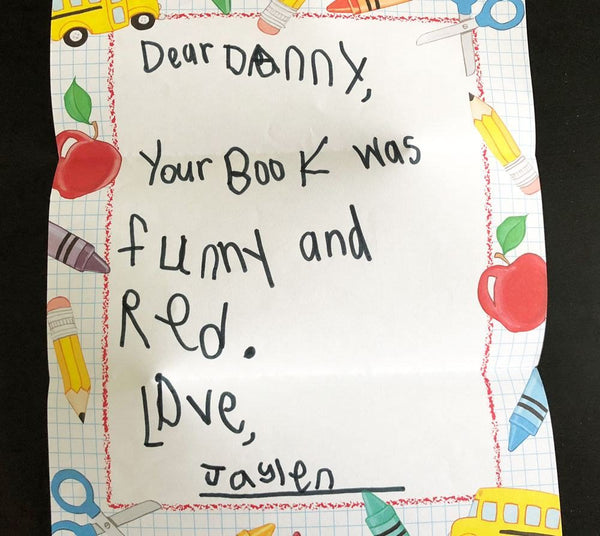 Dear DANNY,
Your Book was
funny and
Red.
Love,
Jaylen